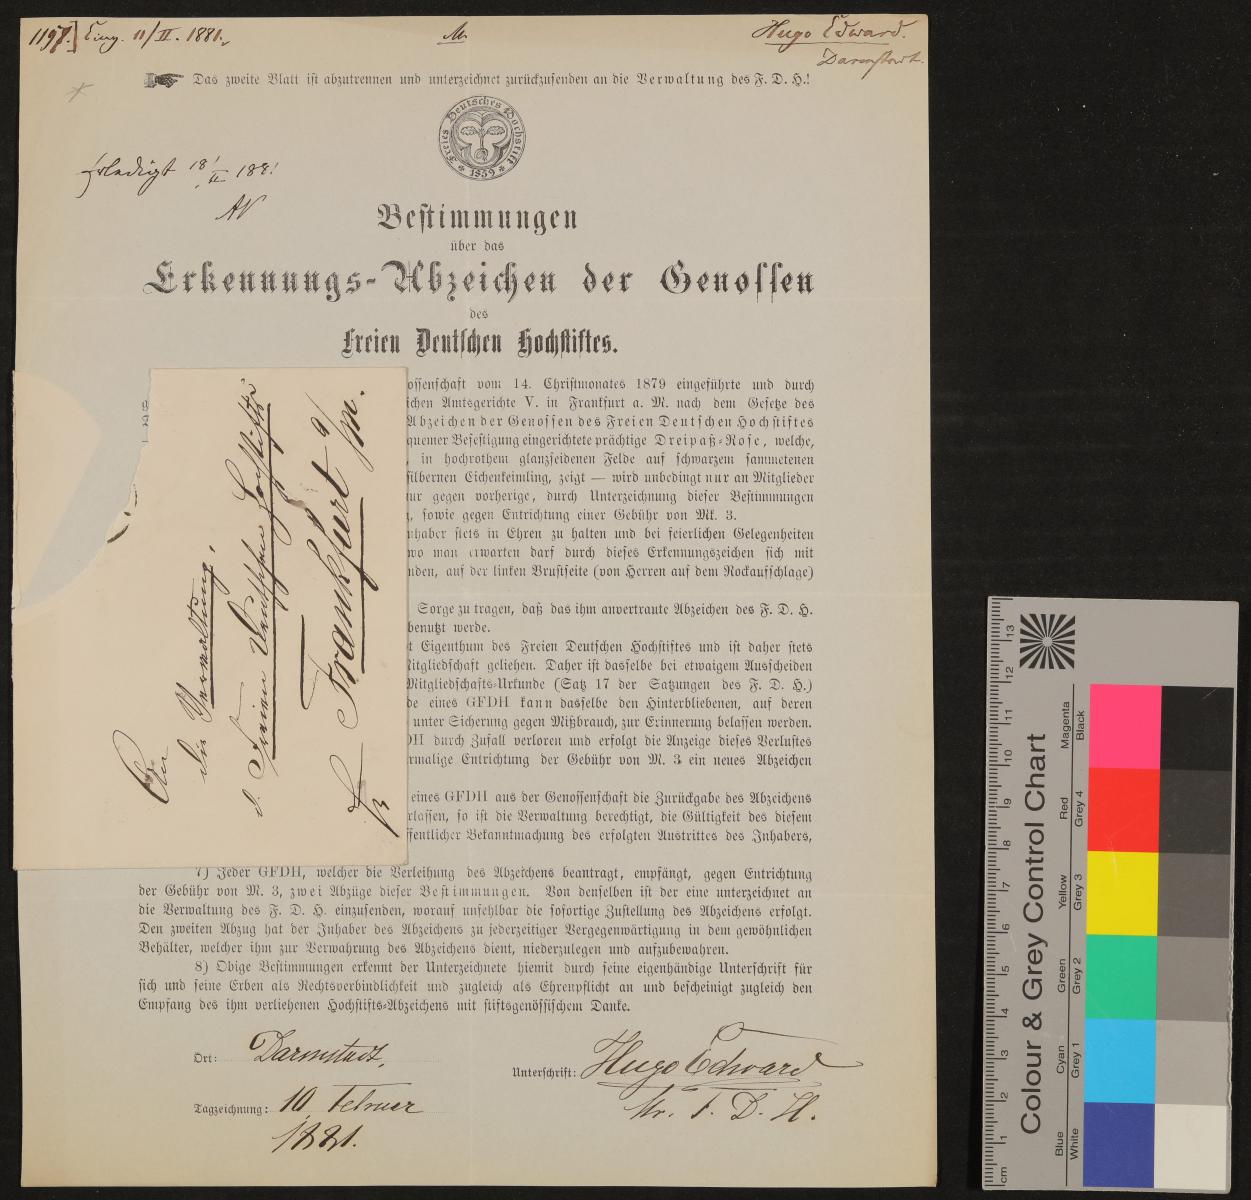 1197.] Eing. 11/II. 1881.
M.
Hugo Edward.
Darmstadt.
Das zweite Blatt iſt abzutrennen und unterzeichnet zurückzuſenden an die Verwaltung des F. D. H.!
Freies Deutsches Hochstift
* 1859 *
Erledigt 18/II 1881
AV
Beſtimmungen
über das
Erkennungs-Abzeichen der Genoſſen
des
Freien Deutſchen Hochſtiftes.
oſſenſchaft vom 14. Chriſtmonates 1879 eingeführte und durch
ichen Amtsgerichte V. in Frankfurt a. M. nach dem Geſetze des
Abzeichen der Genoſſen des Freien Deutſchen Hochſtiftes
quemer Befeſtigung eingerichtete prächtige Dreipaß-Roſe, welche,
, in hochrothem glanzſeidenen Felde auf ſchwarzem ſammetenen
ſilbernen Eichenkeimling, zeigt — wird unbedingt nur an Mitglieder
ur gegen vorherige, durch Unterzeichnung dieſer Beſtimmungen
g, ſowie gegen Entrichtung einer Gebühr von Mk. 3.
nhaber ſtets in Ehren zu halten und bei feierlichen Gelegenheiten
wo man erwarten darf durch dieſes Erkennungszeichen ſich mit
nden, auf der linken Bruſtſeite (von Herren auf dem Rockaufſchlage)
Sorge zu tragen, daß das ihm anvertraute Abzeichen des F. D. H.
benutzt werde.
t Eigenthum des Freien Deutſchen Hochſtiftes und iſt daher ſtets
Mitgliedſchaft geliehen. Daher iſt dasſelbe bei etwaigem Ausſcheiden
Mitgliedſchafts-Urkunde (Satz 17 der Satzungen des F. D. H.)
de eines GFDH kann dasſelbe den Hinterbliebenen, auf deren
unter Sicherung gegen Mißbrauch, zur Erinnerung belaſſen werden.
DH durch Zufall verloren und erfolgt die Anzeige dieſes Verluſtes
rmalige Entrichtung der Gebühr von M. 3 ein neues Abzeichen
eines GFDH aus der Genoſſenſchaft die Zurückgabe des Abzeichens
rlaſſen, ſo iſt die Verwaltung berechtigt, die Gültigkeit des dieſem
ffentlicher Bekanntmachung des erfolgten Austrittes des Inhabers,
7) Jeder GFDH, welcher die Verleihung des Abzeichens beantragt, empfängt, gegen Entrichtung
der Gebühr von M. 3, zwei Abzüge dieſer Beſtimmungen. Von denſelben iſt der eine unterzeichnet an
die Verwaltung des F. D. H. einzuſenden, worauf unfehlbar die ſofortige Zuſtellung des Abzeichens erfolgt.
Den zweiten Abzug hat der Inhaber des Abzeichens zu jederzeitiger Vergegenwärtigung in dem gewöhnlichen
Behälter, welcher ihm zur Verwahrung des Abzeichens dient, niederzulegen und aufzubewahren.
8) Obige Beſtimmungen erkennt der Unterzeichnete hiemit durch ſeine eigenhändige Unterſchrift für
ſich und ſeine Erben als Rechtsverbindlichkeit und zugleich als Ehrenpflicht an und beſcheinigt zugleich den
Empfang des ihm verliehenen Hochſtifts-Abzeichens mit ſtiftsgenöſſiſchem Danke.
Ort: Darmstadt.
Unterſchrift: Hugo Edward
Mr. F. D. H.
Tagzeichnung: 10. Februar
1881.
An
die Verwaltung.
d. Freien Deutschen Hochstifts
Frankfurt a/m.
Colour & Grey Control Chart
Blue Cyan Green Yellow Red Magenta
White Grey 1 Grey 2 Grey 3 Grey 4 Black
cm 1 2 3 4 5 6 7 8 9 10 11 12 13